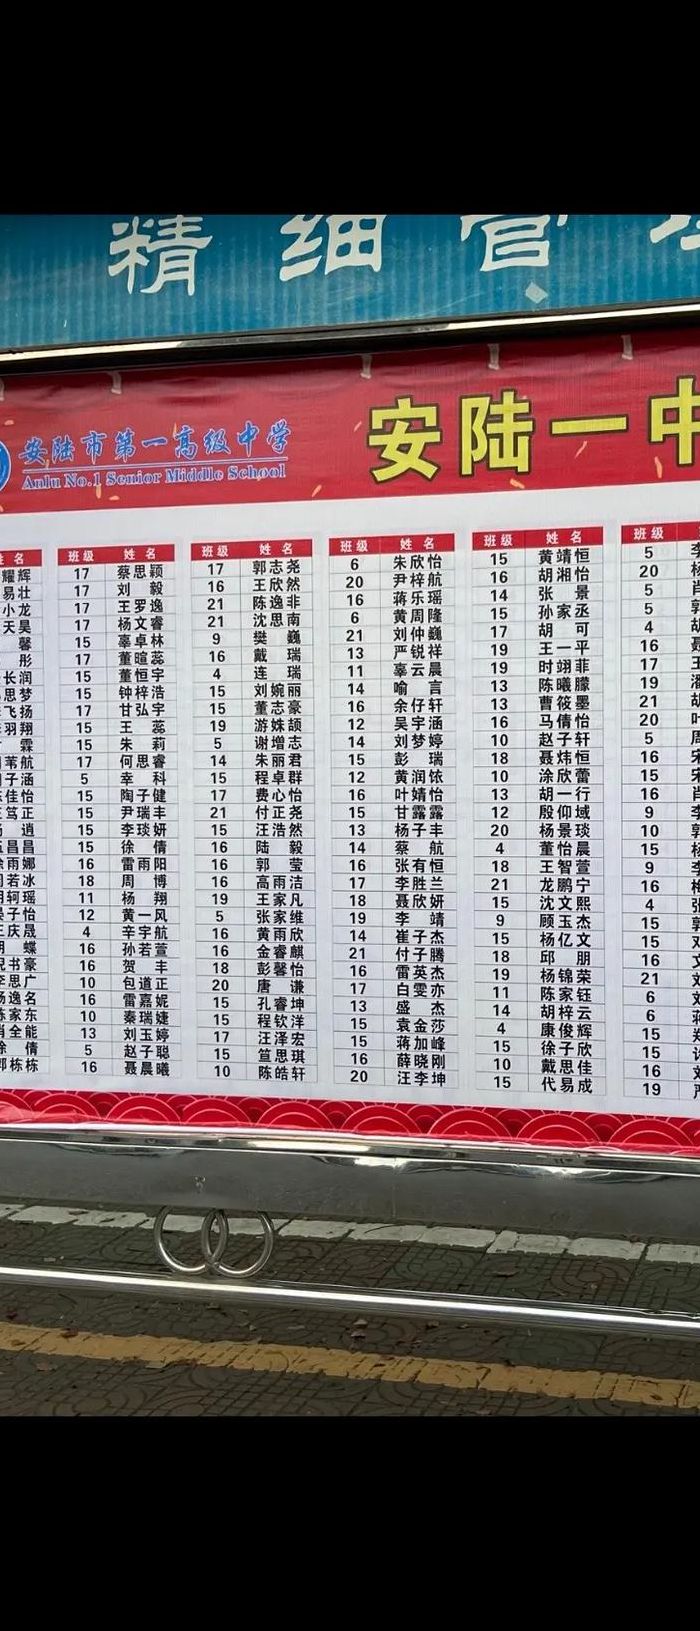 精细管
安陆市第一高级中学
Anlu No.1 Senior Middle School
安陆一中
姓名
耀辉
易壮
小龙
天昊
馨
彤
长润
思梦
飞扬
羽翔
霖
苇航
子涵
佳怡
笃正
逍
昌昌
雨娜
若冰
轲瑶
子怡
庆晟
蝶
书豪
思广
逸名
家东
全能
倩
栋栋
班级 姓名
17 蔡思颖
17 刘毅
17 王罗逸
17 杨文睿
15 辜卓林
17 董暄蕊
15 董恒宇
15 钟梓浩
17 甘弘宇
15 王蕊
15 朱莉
17 何思睿
5 幸科
15 陶子健
15 尹瑞丰
15 李琰妍
15 徐倩
16 雷雨阳
18 周博
11 杨翔
12 黄一风
4 辛宇航
16 孙若萱
16 贺丰
10 包道正
16 雷嘉妮
10 秦瑞婕
13 刘玉婷
5 赵子聪
16 聂晨曦
班级 姓名
17 郭志尧
16 王欣然
21 陈逸非
21 沈思南
9 樊巍
16 戴瑞
4 连瑞
15 刘婉丽
15 董志豪
19 游姝颉
5 谢增志
14 朱丽君
15 程卓群
17 费心怡
21 付正尧
15 汪浩然
16 陆毅
16 郭莹
16 高雨洁
19 王家凡
5 张家维
16 黄雨欣
16 金睿麒
18 彭馨怡
20 唐谦
15 孔睿坤
15 程钦洋
17 汪泽宏
15 笪思琪
10 陈皓轩
班级 姓名
6 朱欣怡
20 尹梓航
16 蒋乐瑶
6 黄周隆
21 刘仲巍
13 严锐祥
11 辜云晨
14 喻言
16 余仔轩
12 吴宇涵
14 刘梦婷
15 彭瑞
12 黄润侬
16 叶婧怡
15 甘露露
13 杨子丰
14 蔡航
16 张有恒
17 李胜兰
18 聂欣妍
19 李靖
14 崔子杰
21 付子腾
16 雷英杰
17 白雯亦
13 盛杰
15 袁金莎
15 蒋加峰
16 薛晓刚
20 汪李坤
班级 姓名
15 黄靖恒
16 胡湘怡
14 张景
15 孙家丞
17 胡可
19 王一平
19 时翊菲
13 陈曦朦
13 曹筱墨
16 马倩怡
10 赵子轩
18 聂炜恒
10 涂欣蕾
13 胡一行
12 殷仰域
20 杨景琰
4 董怡晨
18 王智萱
21 龙鹏宁
15 沈文熙
9 顾玉杰
15 杨亿文
18 邱朋
19 杨锦荣
11 陈家钰
14 胡梓云
4 康俊辉
15 徐子欣
10 戴思佳
15 代易成
班级
5
20
5
5
4
16
17
19
21
20
5
16
15
16
9
10
15
9
16
4
15
15
16
21
6
6
15
15
16
19